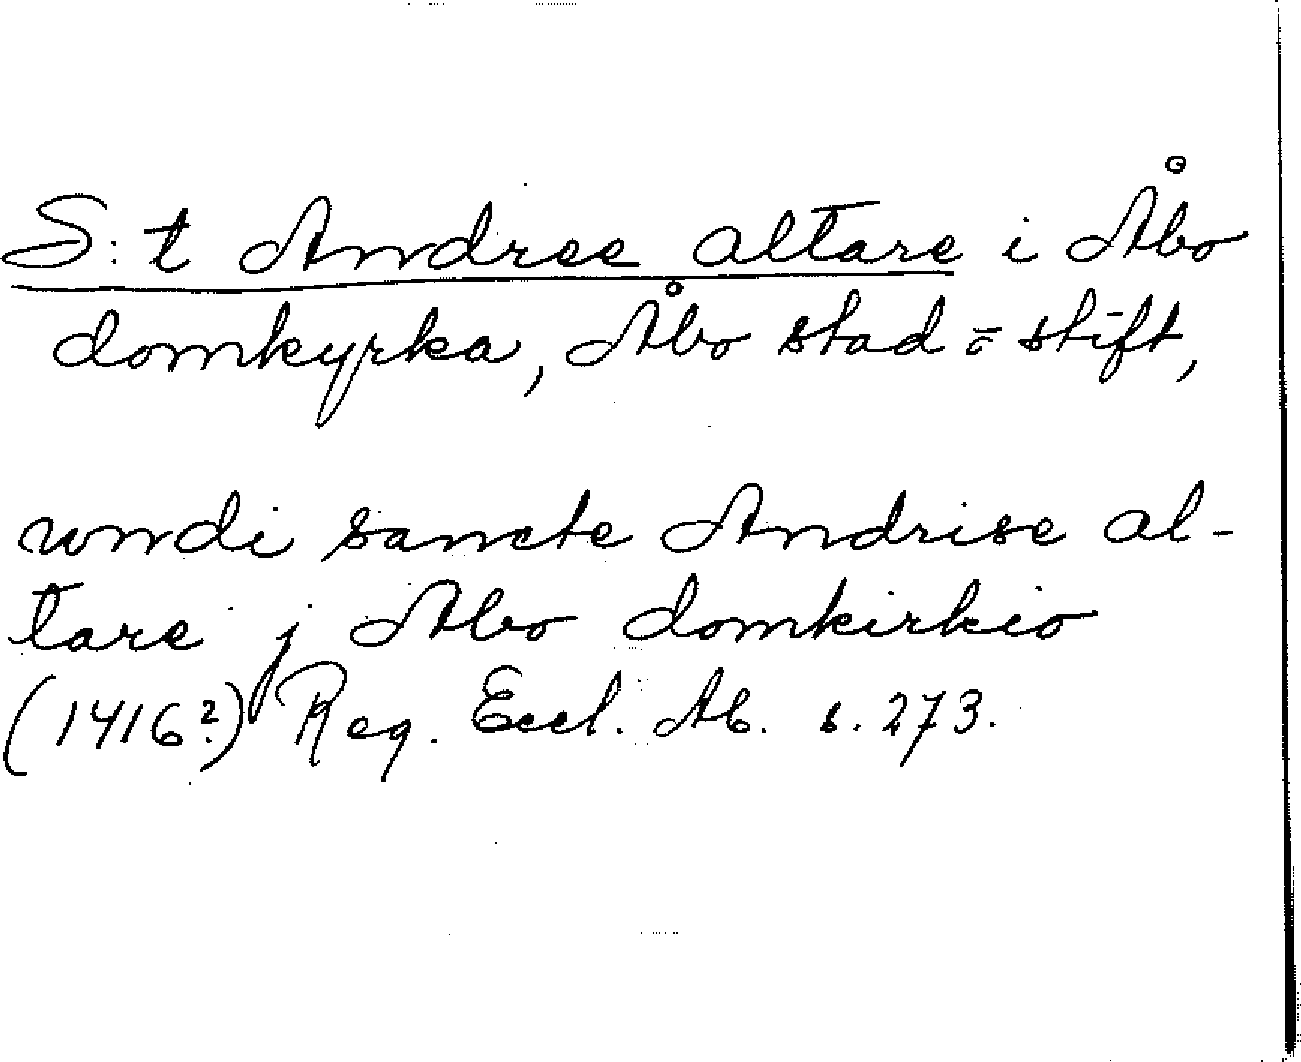 S:t Andree altare i Åbo
domkyrka, Åbo stad o stift,
vndi sancte Andrise al-
tare j Abo domkirkio
(1416?) Reg. Eccl. Ab. s. 273.